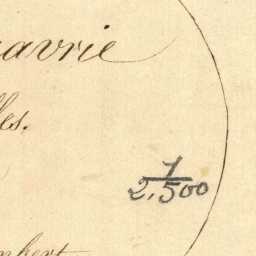 avrie
les.
1
2.500
mbert